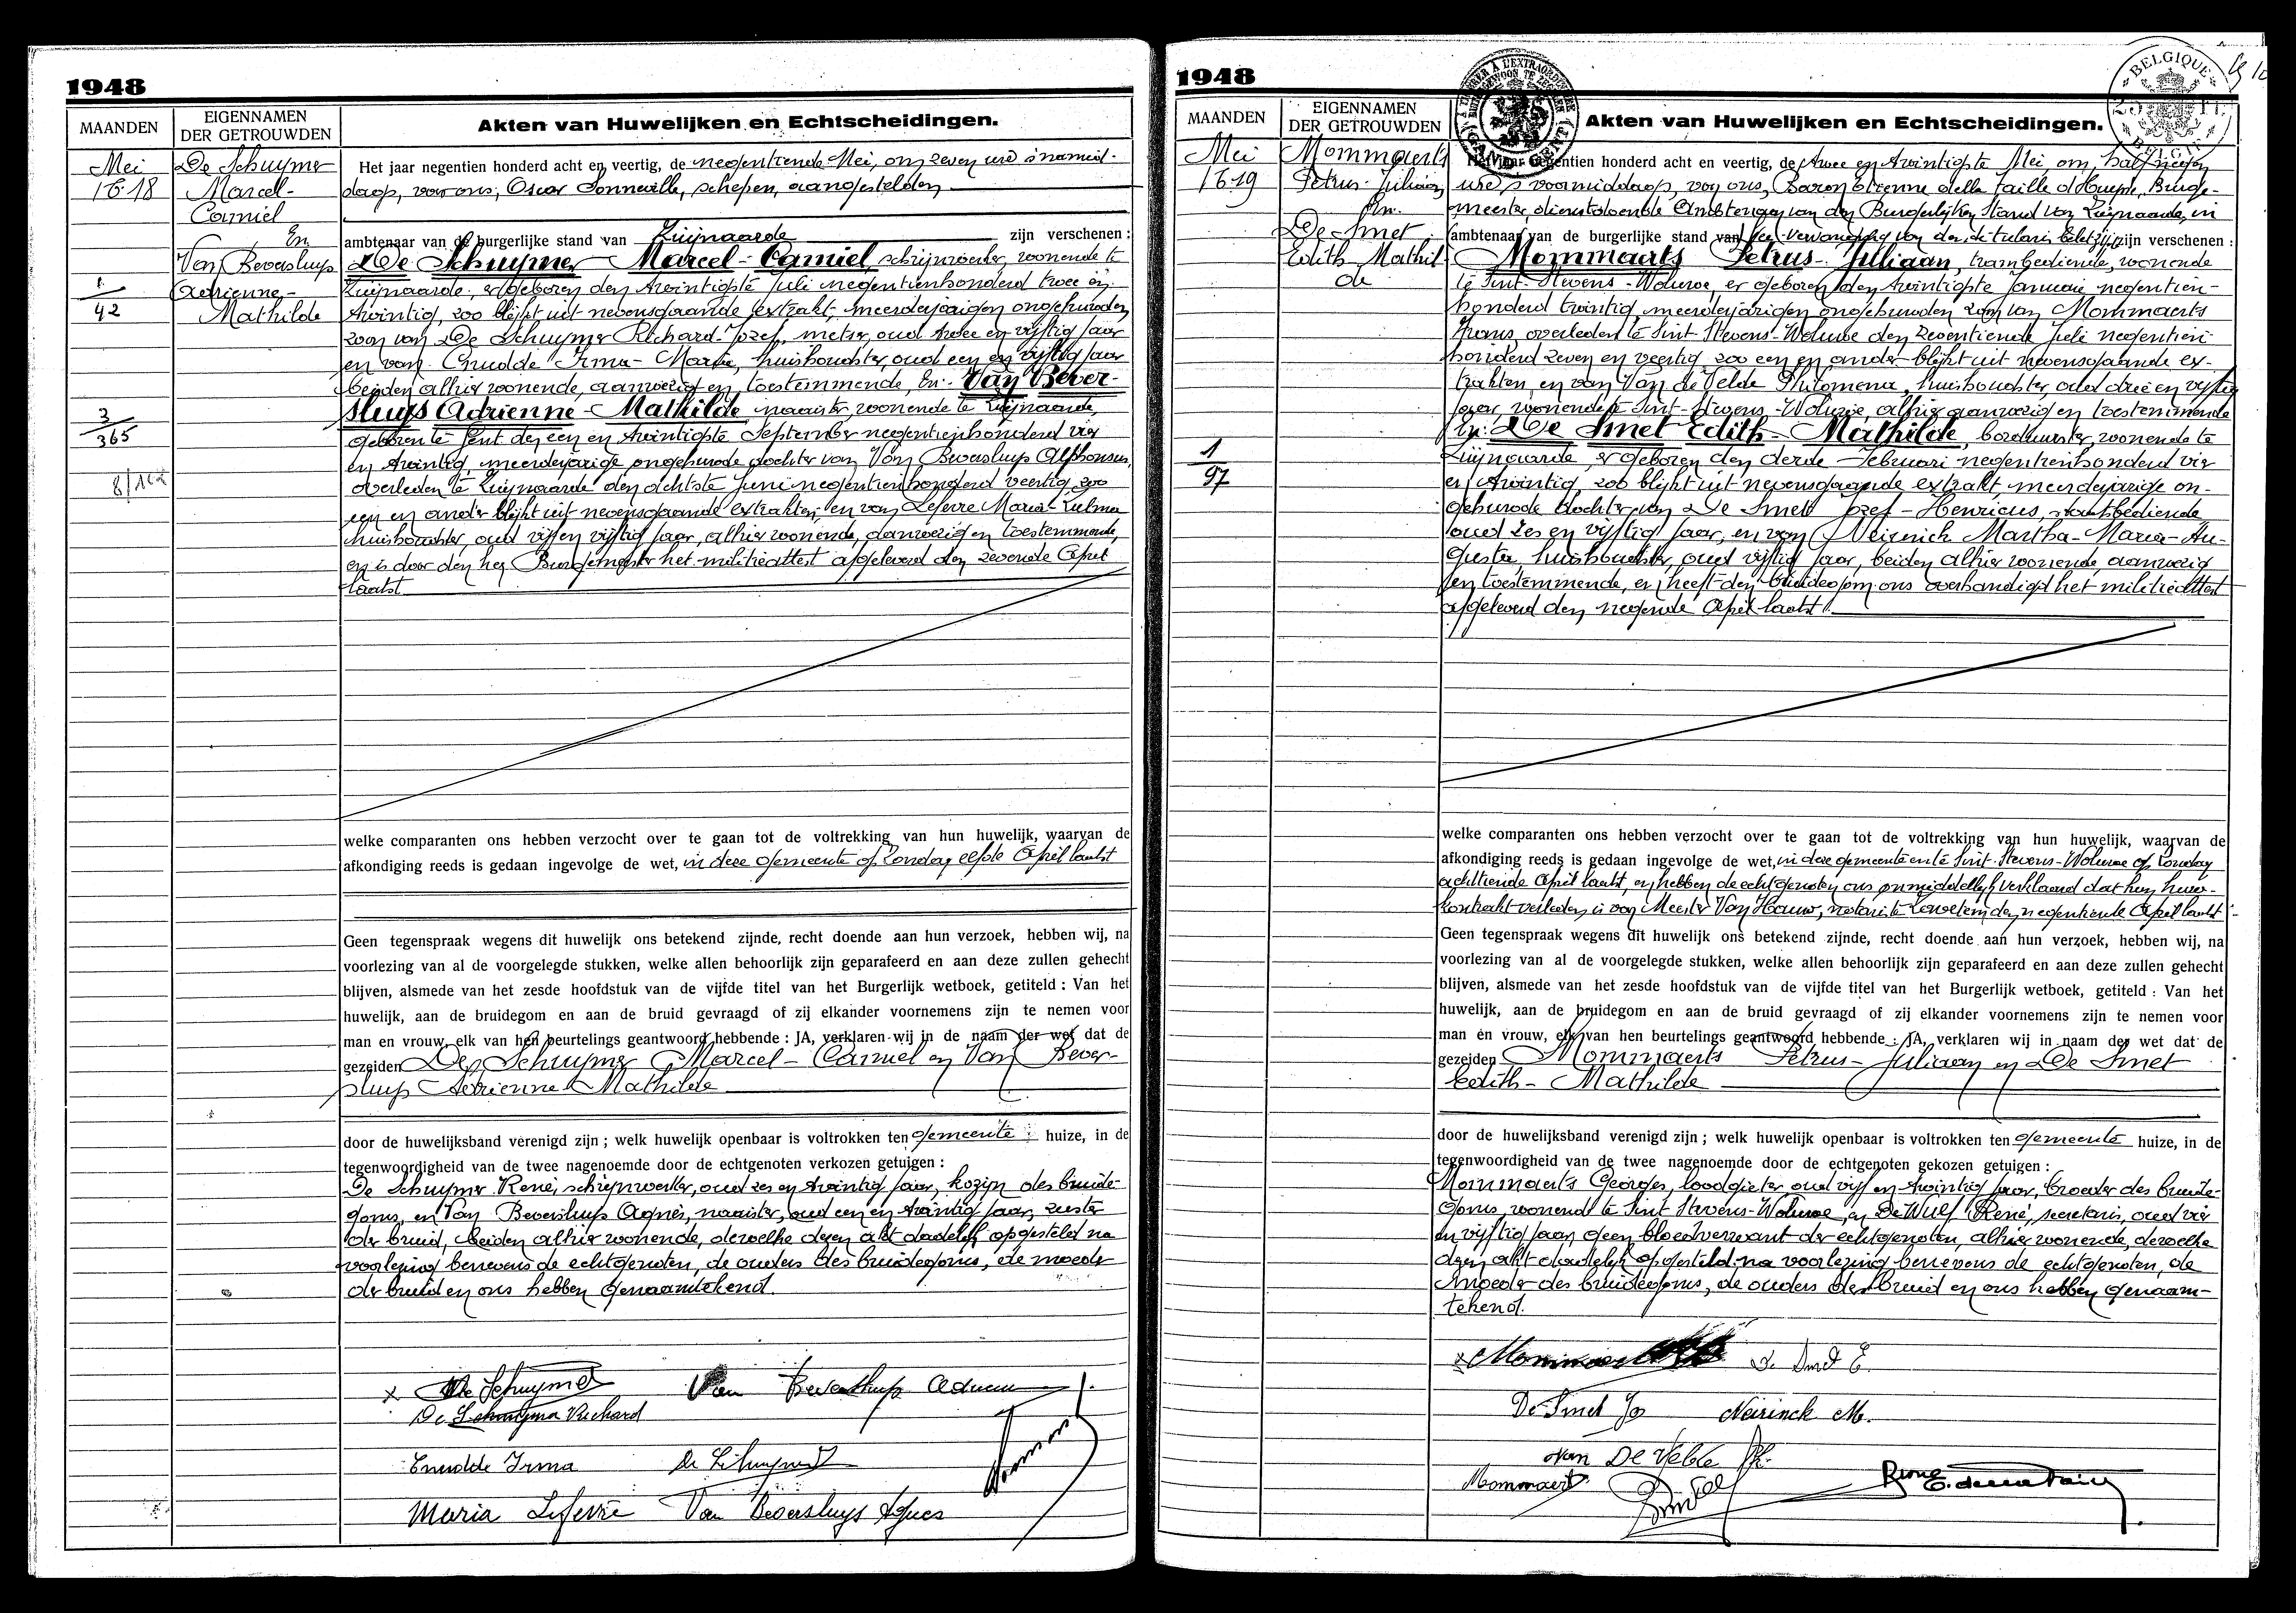 1948
MAANDEN
EIGENNAMEN
DER GETROUWDEN
Akten van Huwelijken en Echtscheidingen.
Mei
1618
De Schuymer
Marcel-
Camiel
En
Van Beversluys
Adrienne-
Mathilde
1
42
3
365
Het jaar negentien honderd acht en veertig, de negentiende Mei, om zeven ure 's namid-
daags, voor ons, Oscar Sonneville, schepen, aangestelden
ambtenaar van de burgerlijke stand van Zwijnaarde zijn verschenen :
De Schuymer Marcel-Camiel, schrijnwerker, wonende te
Zwijnaarde, er geboren den twintigste Juli negentienhonderd twee en
twintig, zoo blijkt uit nevensgaande extrakt, meerderjarigen ongehuwden
zoon van De Schuymer Richard-Jozef, metser, oud twee en vijftig jaar
en van Cnudde Irma-Maria, huishoudster, oud een en vijftig jaar
beiden alhier wonende, aanwezig en toestemmende, En: Van Bever-
sluys Adrienne-Mathilde naaister, wonende te Zwijnaarde,
geboren te Gent den een en twintigste September negentienhonderd vier
en twintig, meerderjarige ongehuwde dochter van Van Beversluys Alphonsus,
overleden te Zwijnaarde den achtste Juni negentienhonderd veertig, zoo
een en ander blijkt uit nevensgaande extrakten, en van Lefevre Maria-Zulma
huishoudster, oud vijf en vijftig jaar, alhier wonende, aanwezig en toestemmende,
en is door den heer Burgemeester het militieattest afgeleverd den zevende April
laatst
welke comparanten ons hebben verzocht over te gaan tot de voltrekking van hun huwelijk, waarvan de
afkondiging reeds is gedaan ingevolge de wet, in deze gemeente op Zondag elfde April laatst
Geen tegenspraak wegens dit huwelijk ons betekend zijnde, recht doende aan hun verzoek, hebben wij, na
voorlezing van al de voorgelegde stukken, welke allen behoorlijk zijn geparafeerd en aan deze zullen gehecht
blijven, alsmede van het zesde hoofdstuk van de vijfde titel van het Burgerlijk wetboek, getiteld : Van het
huwelijk, aan de bruidegom en aan de bruid gevraagd of zij elkander voornemens zijn te nemen voor
man en vrouw, elk van hen beurtelings geantwoord hebbende : JA, verklaren wij in de naam der wet dat de
gezeiden De Schuymer Marcel-Camiel en Van Bever-
sluys Adrienne-Mathilde
door de huwelijksband verenigd zijn ; welk huwelijk openbaar is voltrokken ten gemeente huize, in de
tegenwoordigheid van de twee nagenoemde door de echtgenoten verkozen getuigen :
De Schuymer René, schrijnwerker, oud zes en twintig jaar, kozijn des bruide-
goms, en Van Beversluys Agnès, naaister, oud een en twintig jaar, zuster
der bruid, beiden alhier wonende, dewelke dezen akt dadelijk opgesteld na
voorlezing benevens de echtgenoten, de ouders des bruidegoms, de moeder
der bruid en ons hebben genaamtekend.
x De Schuymer
Van Beversluys Adrienne
De Schuymer Richard
Cnudde Irma
De Schuymer
Maria Lefevre
Van Beversluys Agnes
1948
MAANDEN
EIGENNAMEN
DER GETROUWDEN
Akten van Huwelijken en Echtscheidingen.
BELGIQUE
BELGIË
Mei
1619
Mommaerts
Petrus-Juliaan
En
De Smet
Edith Mathil-
de
1
97
Het jaar negentien honderd acht en veertig, de twee en twintigste Mei om half negen
ure 's voormiddags, voor ons, Baron Etienne della Faille d'Huysse, Burge-
meester dienstdoende Ambtenaar van den Burgerlijken Stand van Zwijnaarde, in
ambtenaar van de burgerlijke stand van vervanging van den titularis belet zijn verschenen :
Mommaerts Petrus-Juliaan, trambediende, wonende
te Sint-Stevens-Woluwe, er geboren den twintigste Januari negentien-
honderd twintig, meerderjarigen ongehuwden zoon van Mommaerts
Frans, overleden te Sint-Stevens-Woluwe den zeventiende Juli negentien-
honderd zeven en veertig, zoo een en ander blijkt uit nevensgaande ex-
trakten, en van Van de Velde Philomena, huishoudster, oud drie en vijftig
jaar, wonende te Sint-Stevens-Woluwe, alhier aanwezig en toestemmende
En: De Smet Edith-Mathilde, borduurster, wonende te
Zwijnaarde, er geboren den derde Februari negentienhonderd vier
en twintig, zoo blijkt uit nevensgaande extrakt, meerderjarige on-
gehuwde dochter van De Smet Jozef-Henricus, stadsbediende
oud zes en vijftig jaar, en van Neirinck Martha-Maria-Au-
gusta, huishoudster, oud vijftig jaar, beiden alhier wonende, aanwezig
en toestemmende, en heeft den bruidegom ons overhandigd het militieattest
afgeleverd den negende April laatst
welke comparanten ons hebben verzocht over te gaan tot de voltrekking van hun huwelijk, waarvan de
afkondiging reeds is gedaan ingevolge de wet, in deze gemeente en te Sint-Stevens-Woluwe op Zondag
achttiende April laatst, en hebben de echtgenoten ons onmiddellijk verklaard dat hun huw-
kontrakt verleden is voor Meester Van Hauw, notaris te den negentiende April laatst
Geen tegenspraak wegens dit huwelijk ons betekend zijnde, recht doende aan hun verzoek, hebben wij, na
voorlezing van al de voorgelegde stukken, welke allen behoorlijk zijn geparafeerd en aan deze zullen gehecht
blijven, alsmede van het zesde hoofdstuk van de vijfde titel van het Burgerlijk wetboek, getiteld : Van het
huwelijk, aan de bruidegom en aan de bruid gevraagd of zij elkander voornemens zijn te nemen voor
man en vrouw, elk van hen beurtelings geantwoord hebbende : JA, verklaren wij in naam der wet dat de
gezeiden Mommaerts Petrus-Juliaan en De Smet
Edith-Mathilde
door de huwelijksband verenigd zijn ; welk huwelijk openbaar is voltrokken ten gemeente huize, in de
tegenwoordigheid van de twee nagenoemde door de echtgenoten gekozen getuigen :
Mommaerts Georges, loodgieter oud vijf en twintig jaar, broeder des bruide-
goms, wonende te Sint Stevens-Woluwe, en De Wulf René, secretaris, oud vier
en vijftig jaar, geen bloedverwant der echtgenoten, alhier wonende, dewelke
dezen akt dadelijk opgesteld na voorlezing benevens de echtgenoten, de
moeder des bruidegoms, de ouders der bruid en ons hebben genaam-
tekend.
x Mommaerts
De Smet E.
De Smet Jos
Neirinck M.
Van De Velde Ph.
Mommaerts